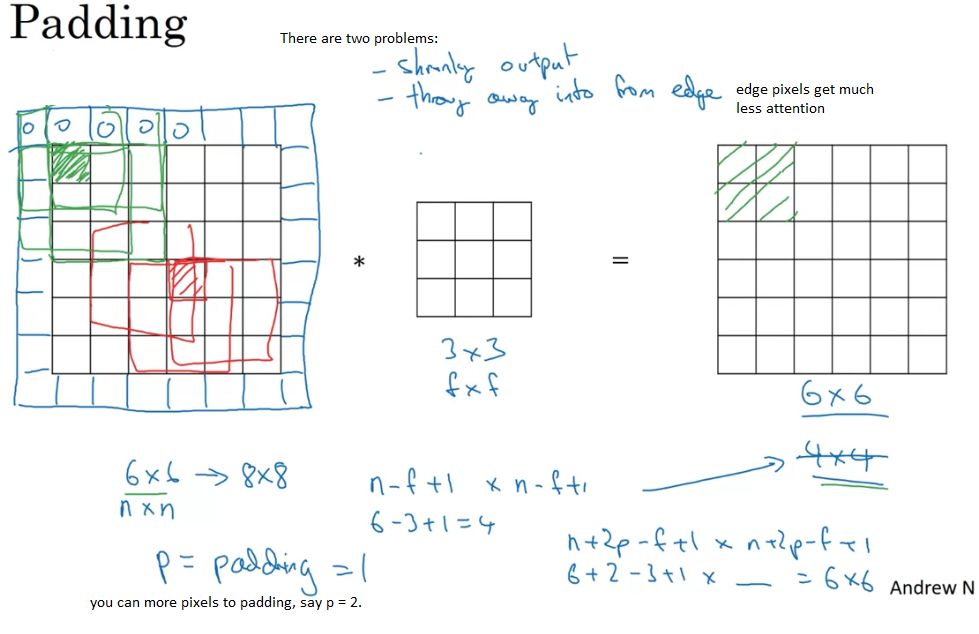 Padding
There are two problems:
- shrinky output
- throw away info from edge
edge pixels get much
less attention
0 0 0 0 0
*
=
3 x 3
f x f
6 x 6
4 x 4
6 x 6 → 8x8
n x n
n-f+1 x n-f+1
6-3+1=4
p = padding = 1
n+2p-f+1 x n+2p-f+1
6+2-3+1 x __ = 6x6
Andrew N
you can more pixels to padding, say p = 2.